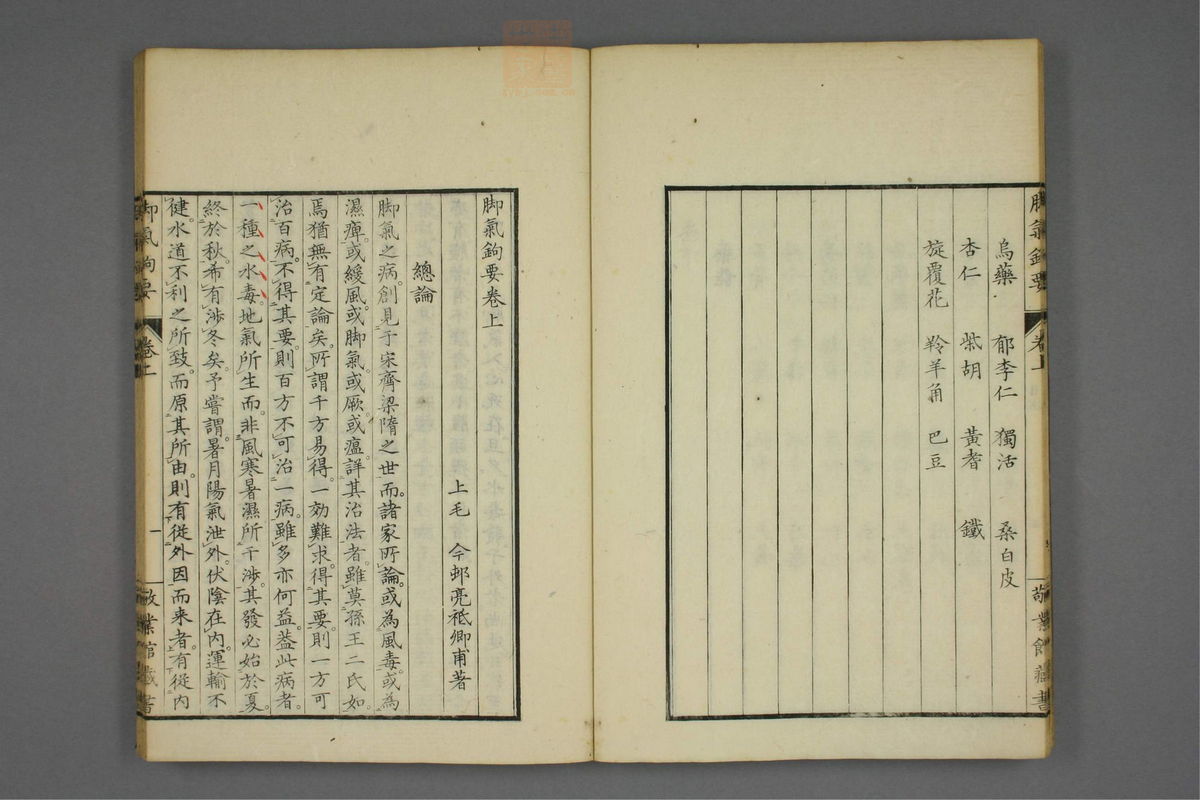 烏藥 郁李仁 獨活 桑白皮
杏仁 柴胡 黃耆 鐵
旋覆花 羚羊角 巴豆
脚氣鉤要 卷上 敬業館藏書
脚氣鉤要卷上
上毛 今邨亮祗卿甫著
總論
脚氣之病。創見于宋齊梁隋之世。而諸家所論。或為風毒。或為
濕痺。或緩風。或脚氣。或厥。或瘟。詳其治法者。雖莫孫王二氏如
焉。猶無有定論矣。所謂千方易得。一効難求。得其要。則一方可
治百病。不得其要。則百方不可治一病。雖多亦何益。葢此病者。
一種之水毒。地氣所生。而非風寒暑濕所干涉。其發必始於夏。
終於秋。希有涉冬矣。予嘗謂。暑月陽氣泄外。伏陰在内。運輸不
健。水道不利之所致。而原其所由。則有從外因而来者。有從内
脚氣鉤要 卷上 一 敬業館藏書